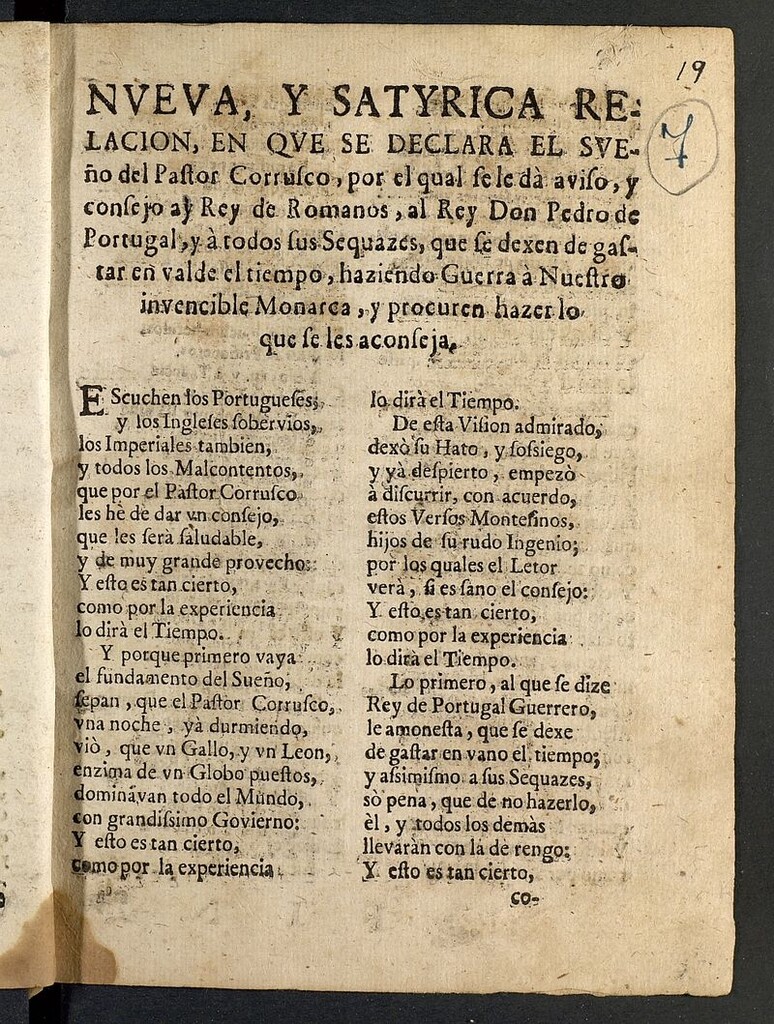 19
7
NVEVA, Y SATYRICA RE-
LACION, EN QVE SE DECLARA EL SVE-
ño del Paſtor Corruſco, por el qual ſe le dà aviſo, y
conſejo aỳ Rey de Romanos, al Rey Don Pedro de
Portugal, y à todos ſus Sequazes, que ſe dexen de gaſ-
tar en valde el tiempo, haziendo Guerra à Nueſtro
invencible Monarca, y procuren hazer lo
que ſe les aconſeja.
EScuchen los Portugueſes,
y los Ingleſes ſobervios,
los Imperiales tambien,
y todos los Malcontentos,
que por el Paſtor Corruſco
les hè de dar vn conſejo,
que les ſerà ſaludable,
y de muy grande provecho:
Y eſto es tan cierto,
como por la experiencia
lo dirà el Tiempo.
Y porque primero vaya
el fundamento del Sueño,
ſepan, que el Paſtor Corruſco,
vna noche, yà durmiendo,
viò, que vn Gallo, y vn Leon,
enzima de vn Globo pueſtos,
dominàvan todo el Mundo,
con grandiſsimo Govierno:
Y eſto es tan cierto,
como por la experiencia
lo dirà el Tiempo.
De eſta Viſion admirado,
dexò ſu Hato, y ſoſsiego,
y yà deſpierto, empezò
à diſcurrir, con acuerdo,
eſtos Verſos Monteſinos,
hijos de ſu rudo Ingenio;
por los quales el Letor
verà, ſi es ſano el conſejo:
Y eſto es tan cierto,
como por la experiencia
lo dirà el Tiempo.
Lo primero, al que ſe dize
Rey de Portugal Guerrero,
le amoneſta, que ſe dexe
de gaſtar en vano el tiempo;
y aſsimiſmo a ſus Sequazes,
sò pena, que de no hazerlo,
èl, y todos los demàs
llevaràn con la de rengo:
Y eſto es tan cierto,
co-